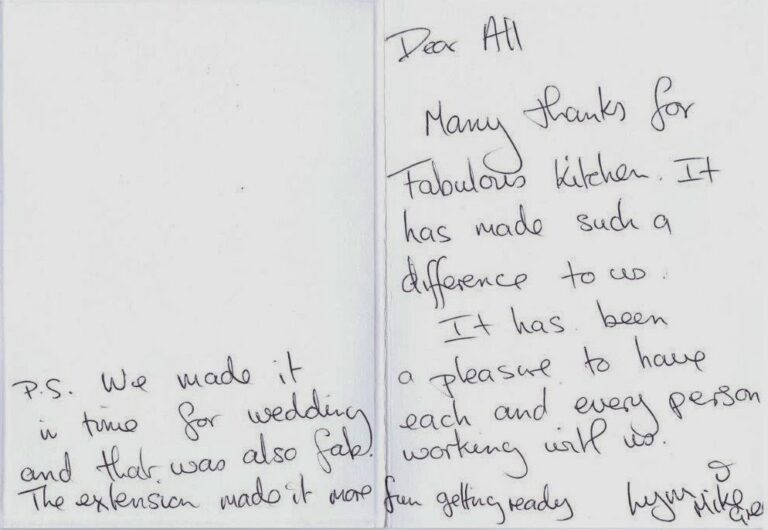 Dear All
Many thanks for
Fabulous kitchen. It
has made such a
difference to us.
It has been
a pleasure to have
each and every person
working with us.
&
Mike
P.S. We made it
in time for wedding
and that was also fab.
The extension made it more fun getting ready